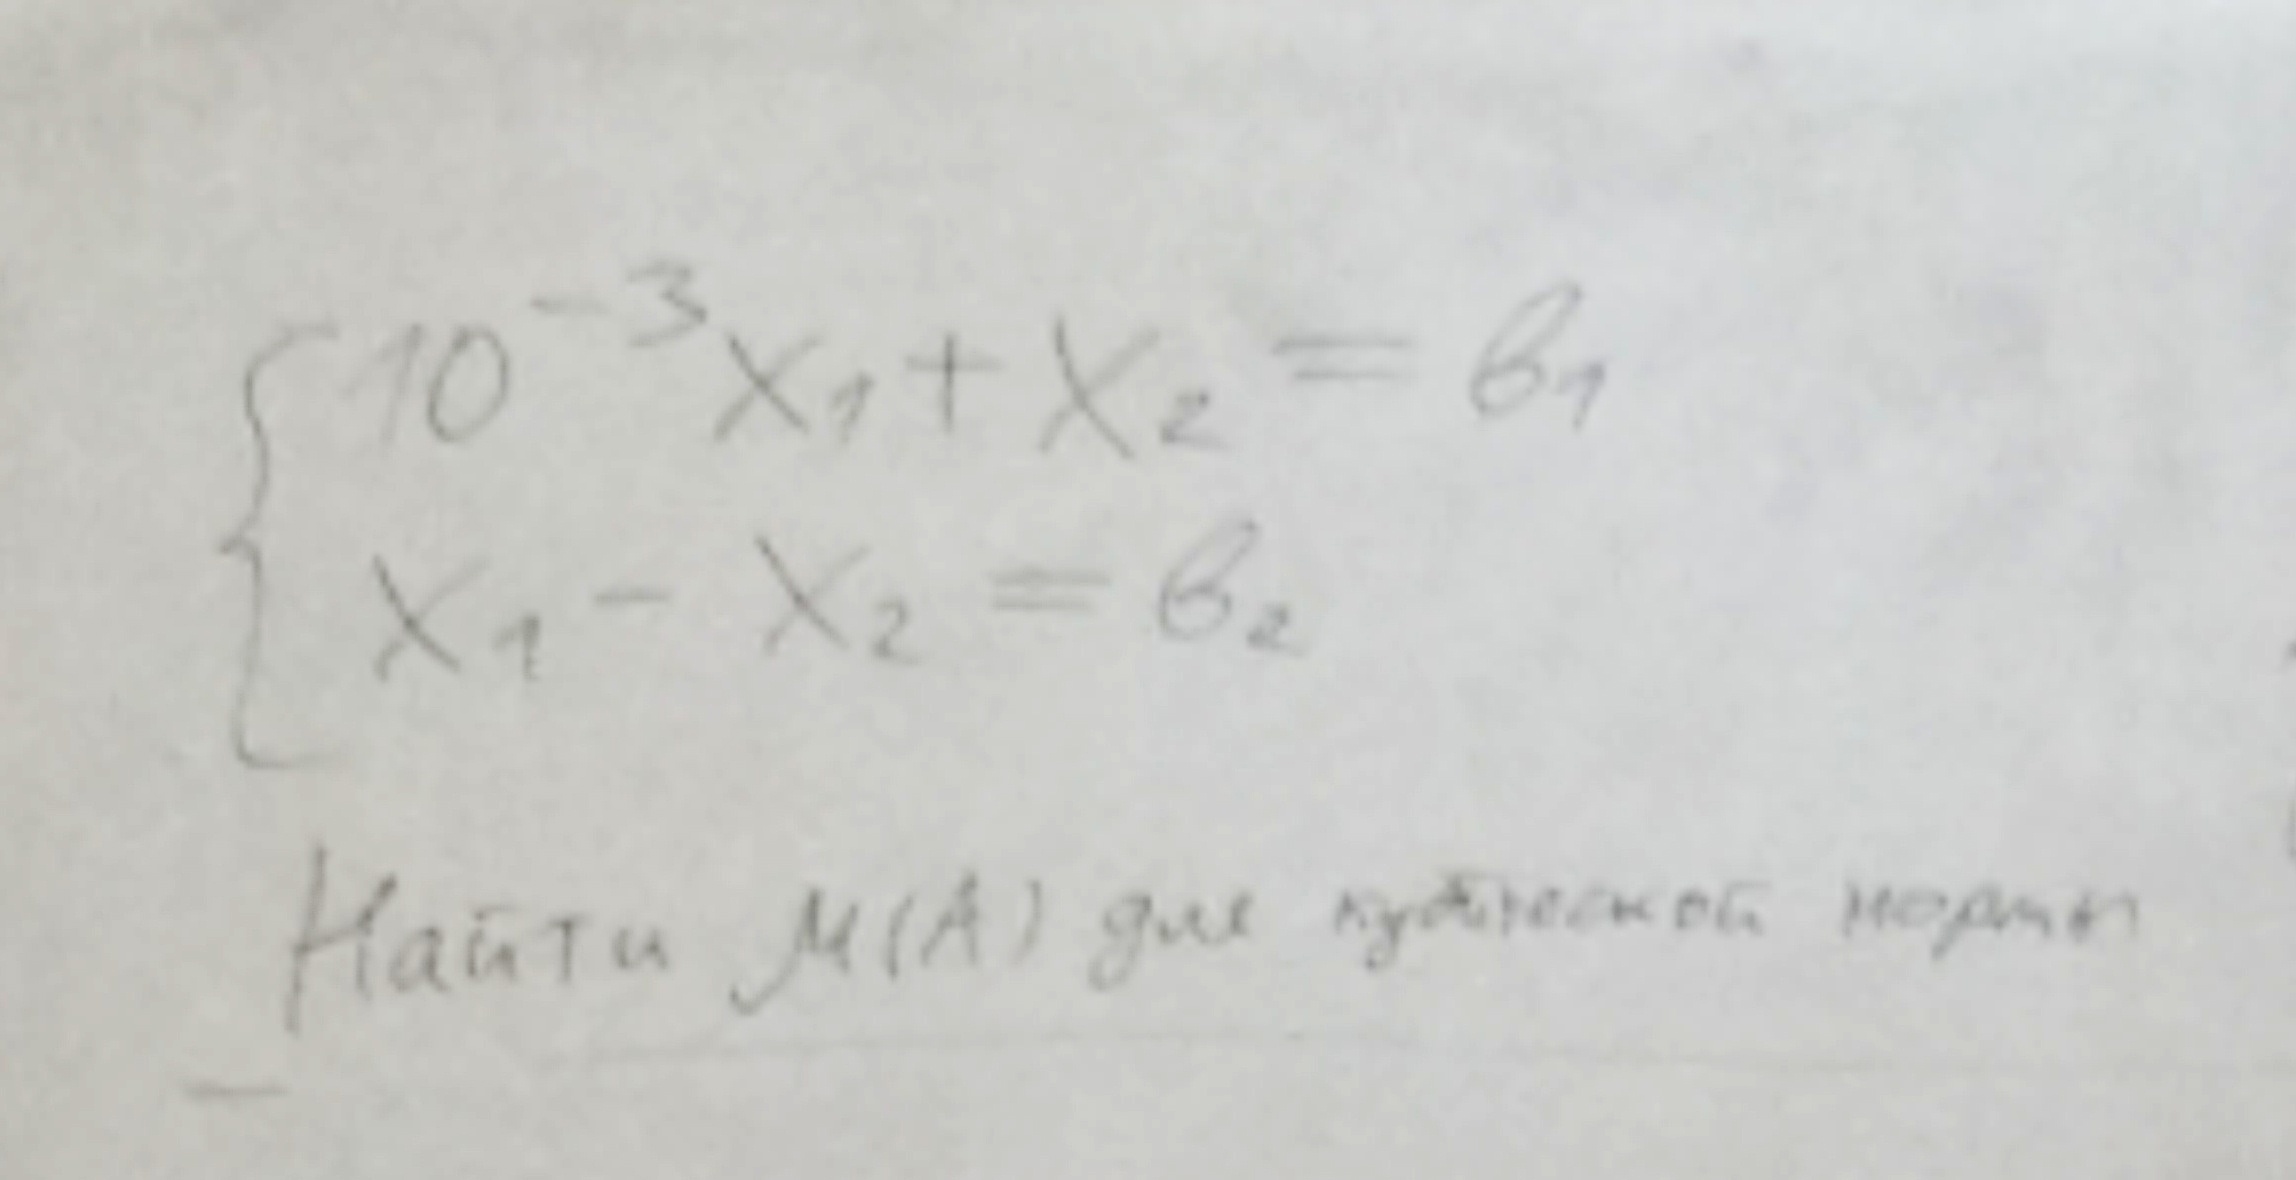 10⁻³x₁ + x₂ = в₁
x₁ - x₂ = в₂
Найти μ(A) для кубической нормы